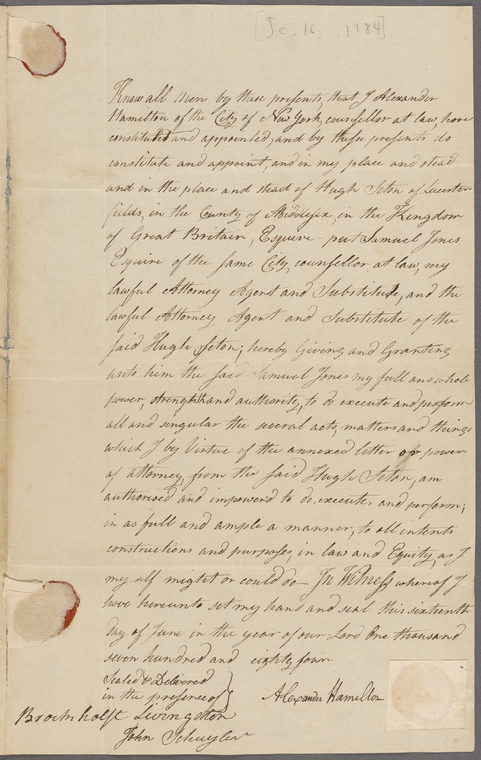 [Je, 16, 1784]
Know all Men by these presents, that I Alexander
Hamilton of the City of New York, counsellor at law, have
constituted and appointed, and by these presents do
constitute and appoint, and in my place and stead
and in the place and stead of Hugh Seton of Leicester
fields, in the County of Middlesex, in the Kingdom
of Great Britain, Esquire put Samuel Jones
Esquire of the same City, counsellor at law, my
lawful Attorney Agent and Substitute, and the
lawful Attorney Agent and Substitute of the
said Hugh Seton; hereby Giving and Granting
unto him the said Samuel Jones my full and whole
power, strength and authority, to do execute and perform
all and singular the several acts, matters and things
which I by Virtue of the annexed letter or power
of attorney, from the said Hugh Seton, am
authorised and impowered to do, execute, and perform;
in as full and ample a manner, to all intents
constructions and purposes, in law and Equity, as I
my self might or could do - In Witness whereof I
have hereunto set my hand and seal this sixteenth
day of June in the year of our Lord One thousand
seven hundred and eighty four
Sealed & Delivered
in the presence of
Alexander Hamilton
Brockholst Livingston
John Schuyler